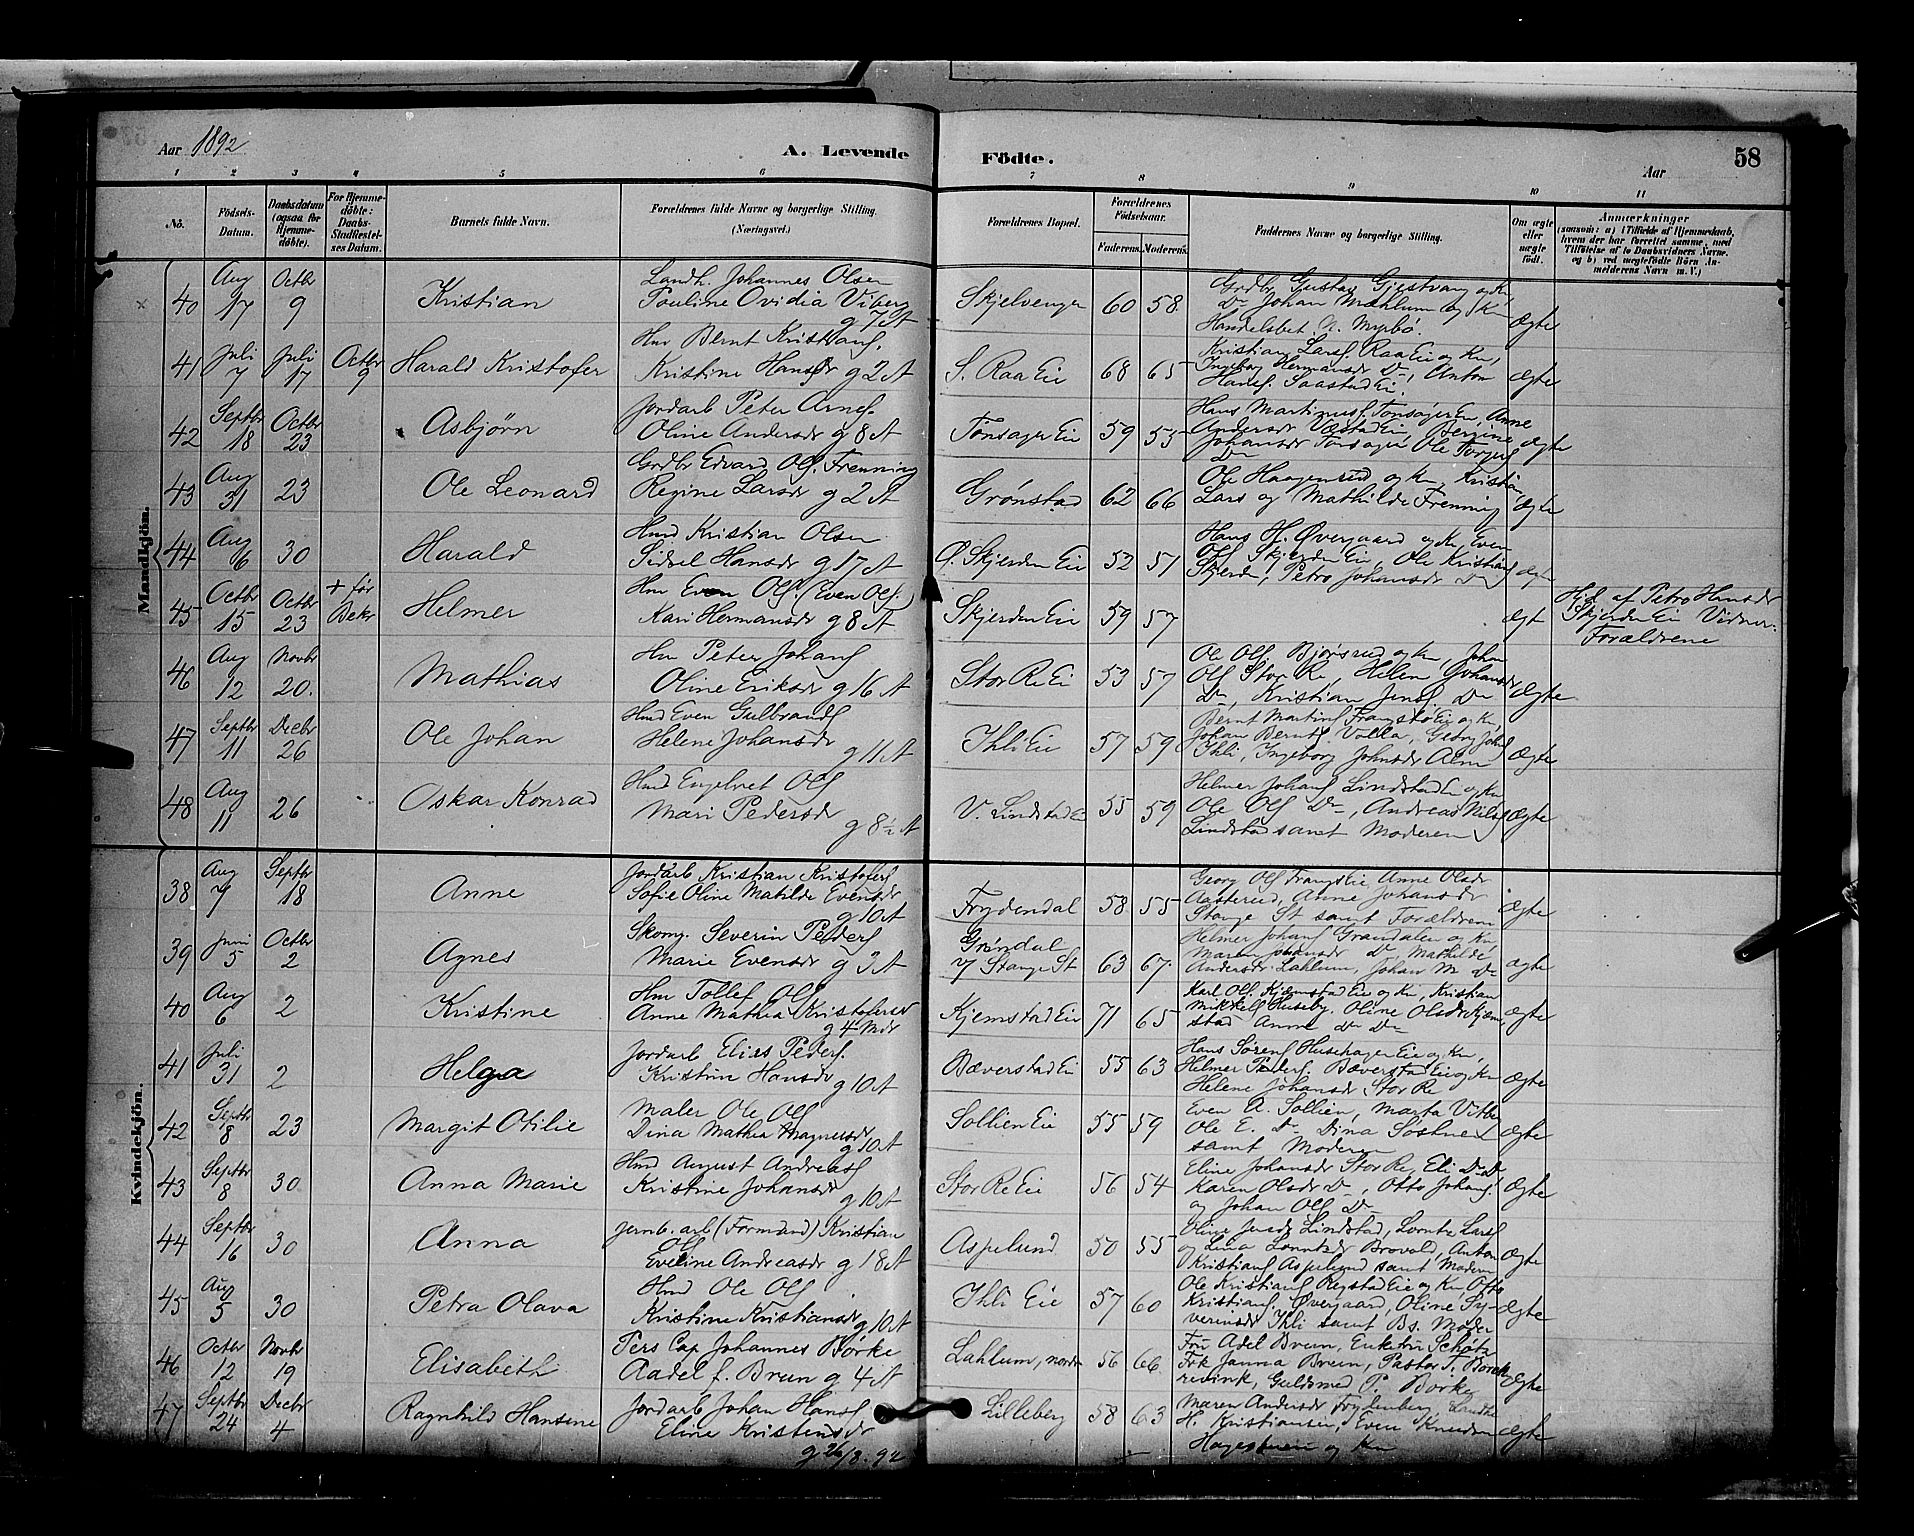 Aar 1892
A. Levende Födte.
58
Aar
1 2 3 4 5 6 7 8 9 10 11
No.
Födsels-Datum.
Daabsdatum (ogsaa for Hjemme-döbte).
For Hjemme-döbte: Daabs-Stadfæstel-ses Datum.
Barnets fulde Navn.
Forældrenes fulde Navne og borgerlige Stilling. (Næringsvei.)
Forældrenes Bopæl.
Forældrenes Födselsaar.
Faderens. Moderens.
Faddernes Navne og borgerlige Stilling.
Om ægte eller uægte födt.
Anmærkninger
(saasom: a) i Tilfælde af Hjemmedaab,
hvem der har forrettet samme, med
Tilföielse af to Daabsvidners Navne.
og b) ved uægtefödte Börn An-
melderens Navn m. V.)
Mandkjön.
40 Aug 17 Octbr 9 Kristian
Landh. Johannes Olsen
Pauline Ovidia Viberg
g 7 A
Skjelvenger 60 58
Grdbr Gustav Gjestvang og Kn
Do Johan Mæhlum og Kn
Handelsbet. A. Myrbö.
Ægte
41 Juli 7 Juli 17 Octbr 9 Harald Kristofer
Hm Bernt Kristians.
Kristine Hansdr g 2 A
S. Raa Eie 68 65
Kristian Lars. Raa Eie og Kn,
Ingeborg Hermansdr Do, Anton
Hans. Saastad Ei
Ægte
42 Septbr 18 Octbr 23 Asbjørn
Jordarb Peter Arnes.
Oline Andersdr g 8 A
Tønsager Eie 59 55
Hans Martinus. Tonsager Eie, Anne
Andersdr Væstad Ei Bergine
Johansdr Tonsager Ole Torgers
Do
Ægte
43 Aug 31 23 Ole Leonard
Grdbr Edvard Ols. Frenning
Regine Larsdr g 2 A
Grønstad 62 66
Ole Haagensrud og Kn, Kristian
Lars og Mathilde Frenning
Ægte
44 Aug 6 30 Harald
Hmd Kristian Olsen
Sidsel Hansdr g 17 A
Ø. Skjerden Eie 52 51
Hans H. Øvergaard og Kn, Even
Ols. Skjerden Eie, Ole Kristians
Skjerden, Petra Johansdr Do
Ægte
45 Octbr 15 Octbr 23 + før Bekr Helmer
Hm Even Ols. (Even Ols.)
Kari Hermansdr g 8 A
Skjerden Eie 59 57
Ægt
Hjd. af Petra Hansdr
Skjerden Ei Vidner:
Forældrene
46 Aug 12 Novbr 20. Mathias
Hm Peter Johans
Oline Eriksdr g 16 A
Stor Re Ei 53 57
Ole Ols Bjørsrud og Kn, Johan
Ols Stor Re, Helene Johansdr
Do, Kristian Jens. Do
Ægte
47 Septbr 11 Decbr 26 Ole Johan
Hmd Even Gulbrands
Helene Johansdr
g 11 A
Ihli Eie 57 59
Bernt Martins Frangstø Eie og Kn
Johan Bernts Volla, Georg Johs
Ihli, Ingeborg Johnsdr Alm
Ægte
48 Aug 11 26 Oskar Konrad
Hmd Engebret Ols
Mari Pedersdr
g 8½ A
V. Lindstad Ei 55 59
Helmer Johans Lindstad Ei og Kn
Ole Ols Do, Andreas Nils
Lindstad samt Moderen
Ægte
Kvindekjön.
38 Aug 7 Septbr 18 Anne
Jordarb Kristian Kristofers
Sofie Oline Matilde Evensdr
g 10 A
Frydendal 58 55
Georg Ols Frangs Eie, Anne Olsdr
Aasterud, Anne Johansdr
Stange St samt Forældrene
Ægte
39 Juni 5 Octbr 2 Agnes
Skom. Severin Peders
Marie Evensdr g 3 A
Grøndal
v/ Stange St 63 67
Helmer Johans Grandalen og Kn
Maren Johansdr Do Mathilde
Andersdr Lahlum, Johan M Do
Ægte
40 Aug 6 2 Kristine
Hm Tollef Ols
Anne Mathea Kristofersdr
g 4 Mdr
Kjemstad Eie 71 65
Karl Ols. Kjemstad Eie og Kn, Kristian
Mikkels Huseby. Oline Olsdr Kjem-
stad Anne Do Do
Ægte
41 Juli 31 2 Helga
Jordarb Elias Peders.
Kristine Hansdr g 10 A
Bæverstad Ei 55 63
Hans Sørens Husehagen Eie og Kn,
Helmer Peders. Bæverstad Eie og Kn
Helene Johansdr Stor Re
Ægte
42 Septbr 8 23 Margit Otilie
Maler Ole Ols
Dina Mathea Magnusdr
g 10 A
Sollien Eie 55 59
Even A. Sollien, Marta
Ole E. Do Dina
samt Moderen
Ægte
43 Septbr 8 30 Anna Marie
Hmd August Andreas
Kristine Johansdr
g 10 A
Stor Re Eie 56 54
Eline Johansdr Stor Re, Eli Do Do
Karen Olsdr Do, Otto Johans.
og Johan Ols Do
Ægte
44 Septbr 16 30 Anna
Jernb. arb (Formand) Kristian
Ols
Eveline Andreasdr g 18 A
Aspelund 50 55
Oline Jensdr Lindstad, Lorntz Lars
og Lina Lorntzdr Brovold, Anton
Kristians Aspelund samt Moderen
Ægte
45 Aug 5 30 Petra Olava
Hmd Ole Ols.
Kristine Kristiansdr
g 10 A
Ihli Eie 57 60
Ole Kristians Ryestad Eie og Kn Otto
Kristians. Øvergaard, Oline Sy-
verinsdr Ihli samt Bs. Moder
Ægte
46 Octbr 12 Novbr 19 Elisabeth
Pers Cap Johannes Børke
Aadel f. Brun g 4 A
Lahlum, nordre 56 66
Fru Adel Brun, Enkefru Schøtz
Frk Janna Brun, Pastor T.
Guldsmed P. Børke
Ægte
47 Septbr 24 Decbr 4 Ragnhild Hansine
Jordarb Johan Hans
Eline Kristensdr
g 26/3.92
Lilleberg 58 63
Maren Andersdr Frydenberg Landh.
H. Kristiansen, Even Knudsen
Hagestuen og Kn
Ægte